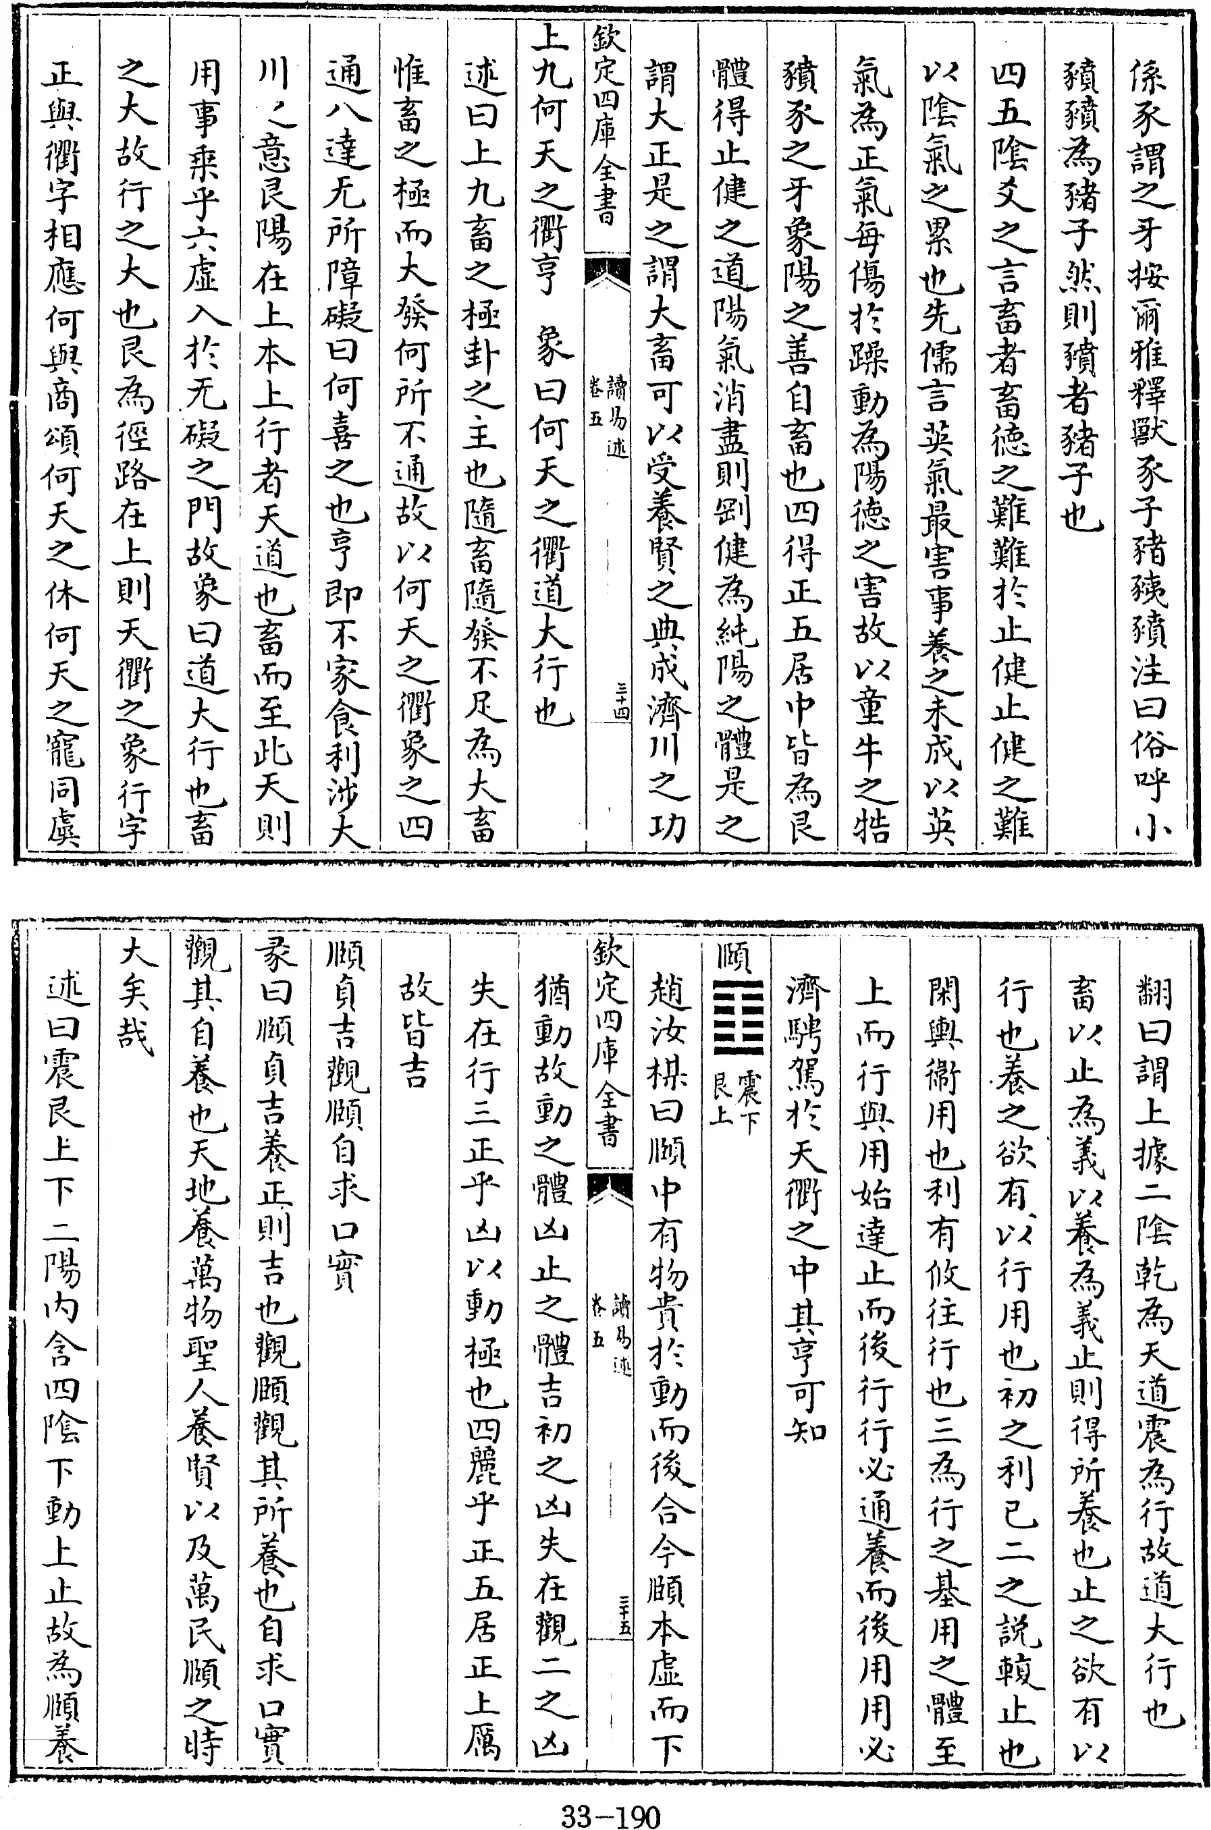 係豕謂之牙按爾雅釋獸豕子豬𧱓豶注曰俗呼小
豶豶為豬子然則豶者豬子也
四五陰爻之言畜者畜德之難難於止健止健之難
以陰氣之累也先儒言英氣最害事養之未成以英
氣為正氣每傷於躁動為陽德之害故以童牛之牿
豶豕之牙象陽之善自畜也四得正五居中皆為艮
體得止健之道陽氣消盡則剛健為純陽之體是之
謂大正是之謂大畜可以受養賢之典成濟川之功
欽定四庫全書
讀易述
卷五
三十四
上九何天之衢亨　象曰何天之衢道大行也
述曰上九畜之極卦之主也隨畜隨發不足為大畜
惟畜之極而大發何所不通故以何天之衢象之四
通八達无所障礙曰何喜之也亨即不家食利涉大
川之意艮陽在上本上行者天道也畜而至此天則
用事乘乎六虛入於无礙之門故象曰道大行也畜
之大故行之大也艮為徑路在上則天衢之象行字
正與衢字相應何與商頌何天之休何天之寵同虞
翻曰謂上據二陰乾為天道震為行故道大行也
畜以止為義以養為義止則得所養也止之欲有以
行也養之欲有以行用也初之利已二之説輹止也
閑輿衞用也利有攸往行也三為行之基用之體至
上而行與用始達止而後行行必通養而後用用必
濟騁駕於天衢之中其亨可知
頤 震下
艮上
趙汝楳曰頤中有物貴於動而後合今頤本虛而下
欽定四庫全書
讀易述
卷五
三十五
猶動故動之體凶止之體吉初之凶失在觀二之凶
失在行三正乎凶以動極也四麗乎正五居正上厲
故皆吉
頤貞吉觀頤自求口實
彖曰頤貞吉養正則吉也觀頤觀其所養也自求口實
觀其自養也天地養萬物聖人養賢以及萬民頤之時
大矣哉
述曰震艮上下二陽内含四陰下動上止故為頤養
33-190